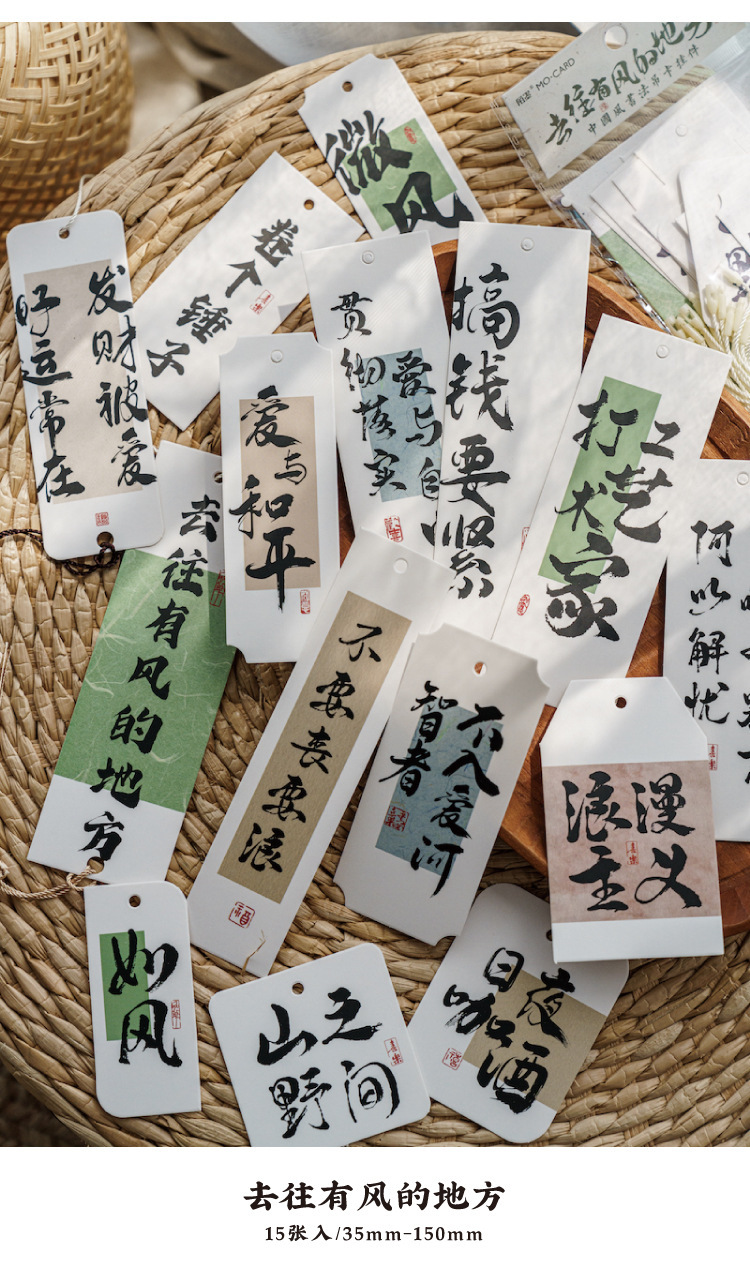 陌迟 MO·CARD
去往有风的地方
中國風書法吊卡挂件
微风
卷个锤子
发财被爱
好运常在
贯彻落实
爱与自
搞钱要紧
打工艺
术家
爱与和平
去往有风的地方
不要丧要浪
智者
不入爱河
何以解忧
浪漫
主义
如风
山野
之间
日咖
夜酒
去往有风的地方
15张入/35mm-150mm